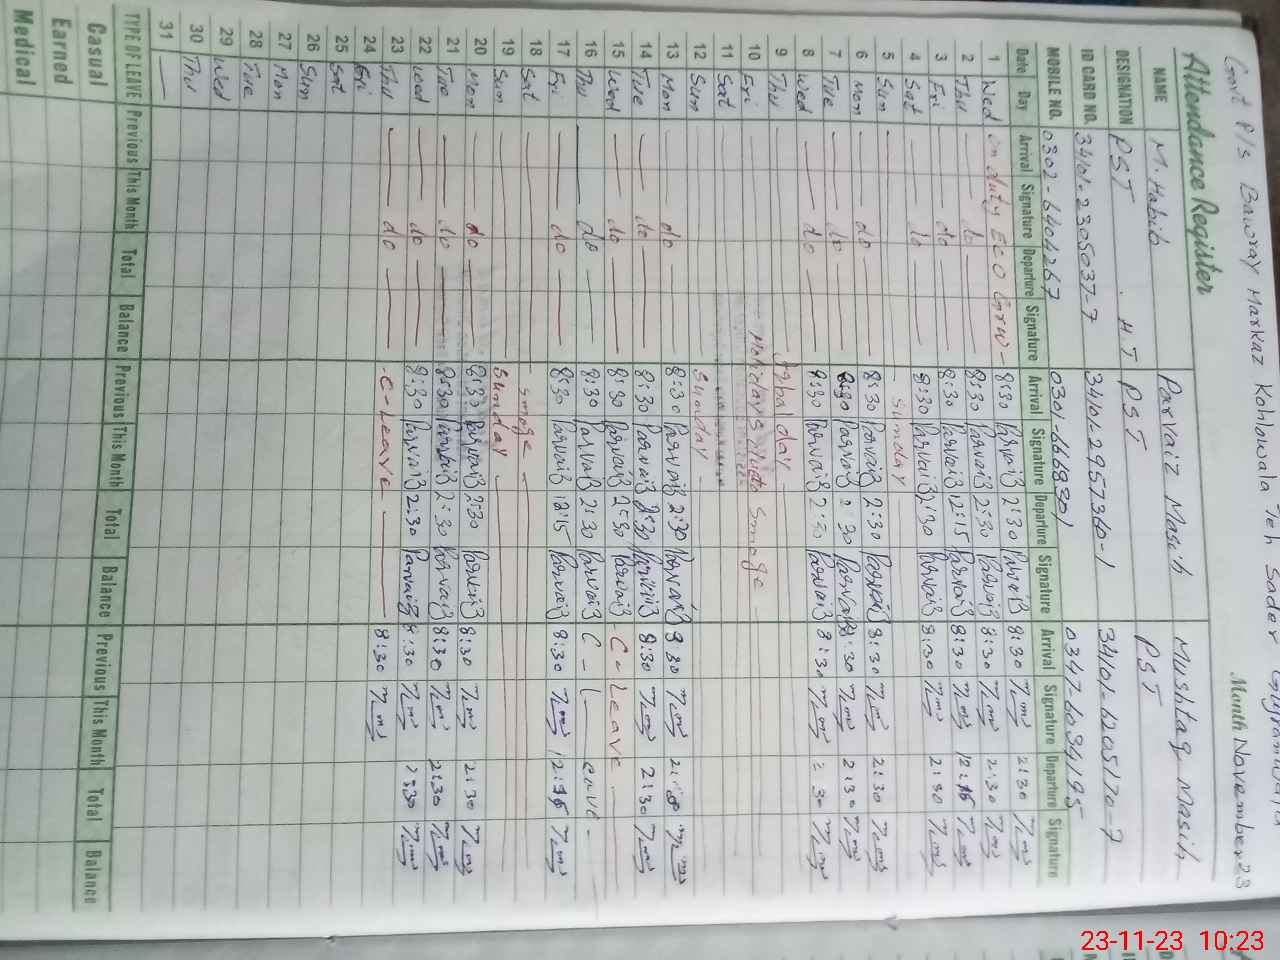 Govt P/S Bawray Markaz Kohlowala Teh Sadar Gujranwala
Attendance Register Month November, 23
NAME M. Habib Parvaiz Masih Mushtaq Masih
DESIGNATION PST H.T PST PST
ID CARD NO. 34101-2305037-7 34101-2957360-1 34101-1205170-7
MOBILE NO. 0302-6404267 0301-6668301 0347-6034195
Date Day Arrival Signature Departure Signature Arrival Signature Departure Signature Arrival Signature Departure Signature
1 Wed on duty ECO Grw - 8:30 Parvaiz 2:30 Parvaiz 8:30 2:30
2 Thu do 8:30 Parvaiz 2:30 Parvaiz 8:30 2:30
3 Fri do 8:30 Parvaiz 12:15 Parvaiz 8:30 12:15
4 Sat do 8:30 Parvaiz 2:30 Parvaiz 8:30 2:30
5 Sun - Sunday
6 Mon do 8:30 Parvaiz 2:30 Parvaiz 8:30 2:30
7 Tue do 8:30 Parvaiz 2:30 Parvaiz 8:30 2:30
8 Wed do 8:30 Parvaiz 2:30 Parvaiz 8:30 2:30
9 Thu Iqbal day -
10 Fri - Holidays due to Smoge -
11 Sat
12 Sun Sunday -
13 Mon do 8:30 Parvaiz 2:30 Parvaiz 8:30
14 Tue do 8:30 Parvaiz 2:30 Parvaiz 8:30 2:30
15 Wed do 8:30 Parvaiz 2:30 Parvaiz C-Leave -
16 Thu do 8:30 Parvaiz 2:30 Parvaiz C - Leave -
17 Fri do 8:30 Parvaiz 12:15 Parvaiz 8:30 12:15
18 Sat - Smoge -
19 Sun Sunday -
20 Mon do 8:30 Parvaiz 2:30 Parvaiz 8:30 2:30
21 Tue do 8:30 Parvaiz 2:30 Parvaiz 8:30 2:30
22 Wed do 8:30 Parvaiz 2:30 Parvaiz 8:30 2:30
23 Thu do C-Leave 8:30
24 Fri
25 Sat
26 Sun
27 Mon
28 Tue
29 Wed
30 Thu
31 —
TYPE OF LEAVE Previous This Month Total Balance Previous This Month Total Balance Previous This Month Total Balance
Casual
Earned
Medical
23-11-23 10:23